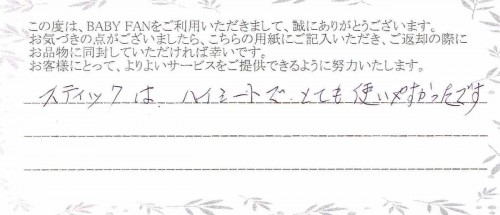 この度は、BABY FANをご利用いただきまして、誠にありがとうございます。
お気づきの点がございましたら、こちらの用紙にご記入いただき、ご返却の際に
お品物に同封していただければ幸いです。
お客様にとって、よりよいサービスをご提供できるように努力いたします。
スティックは、ハイシートで、とても使いやすかったです